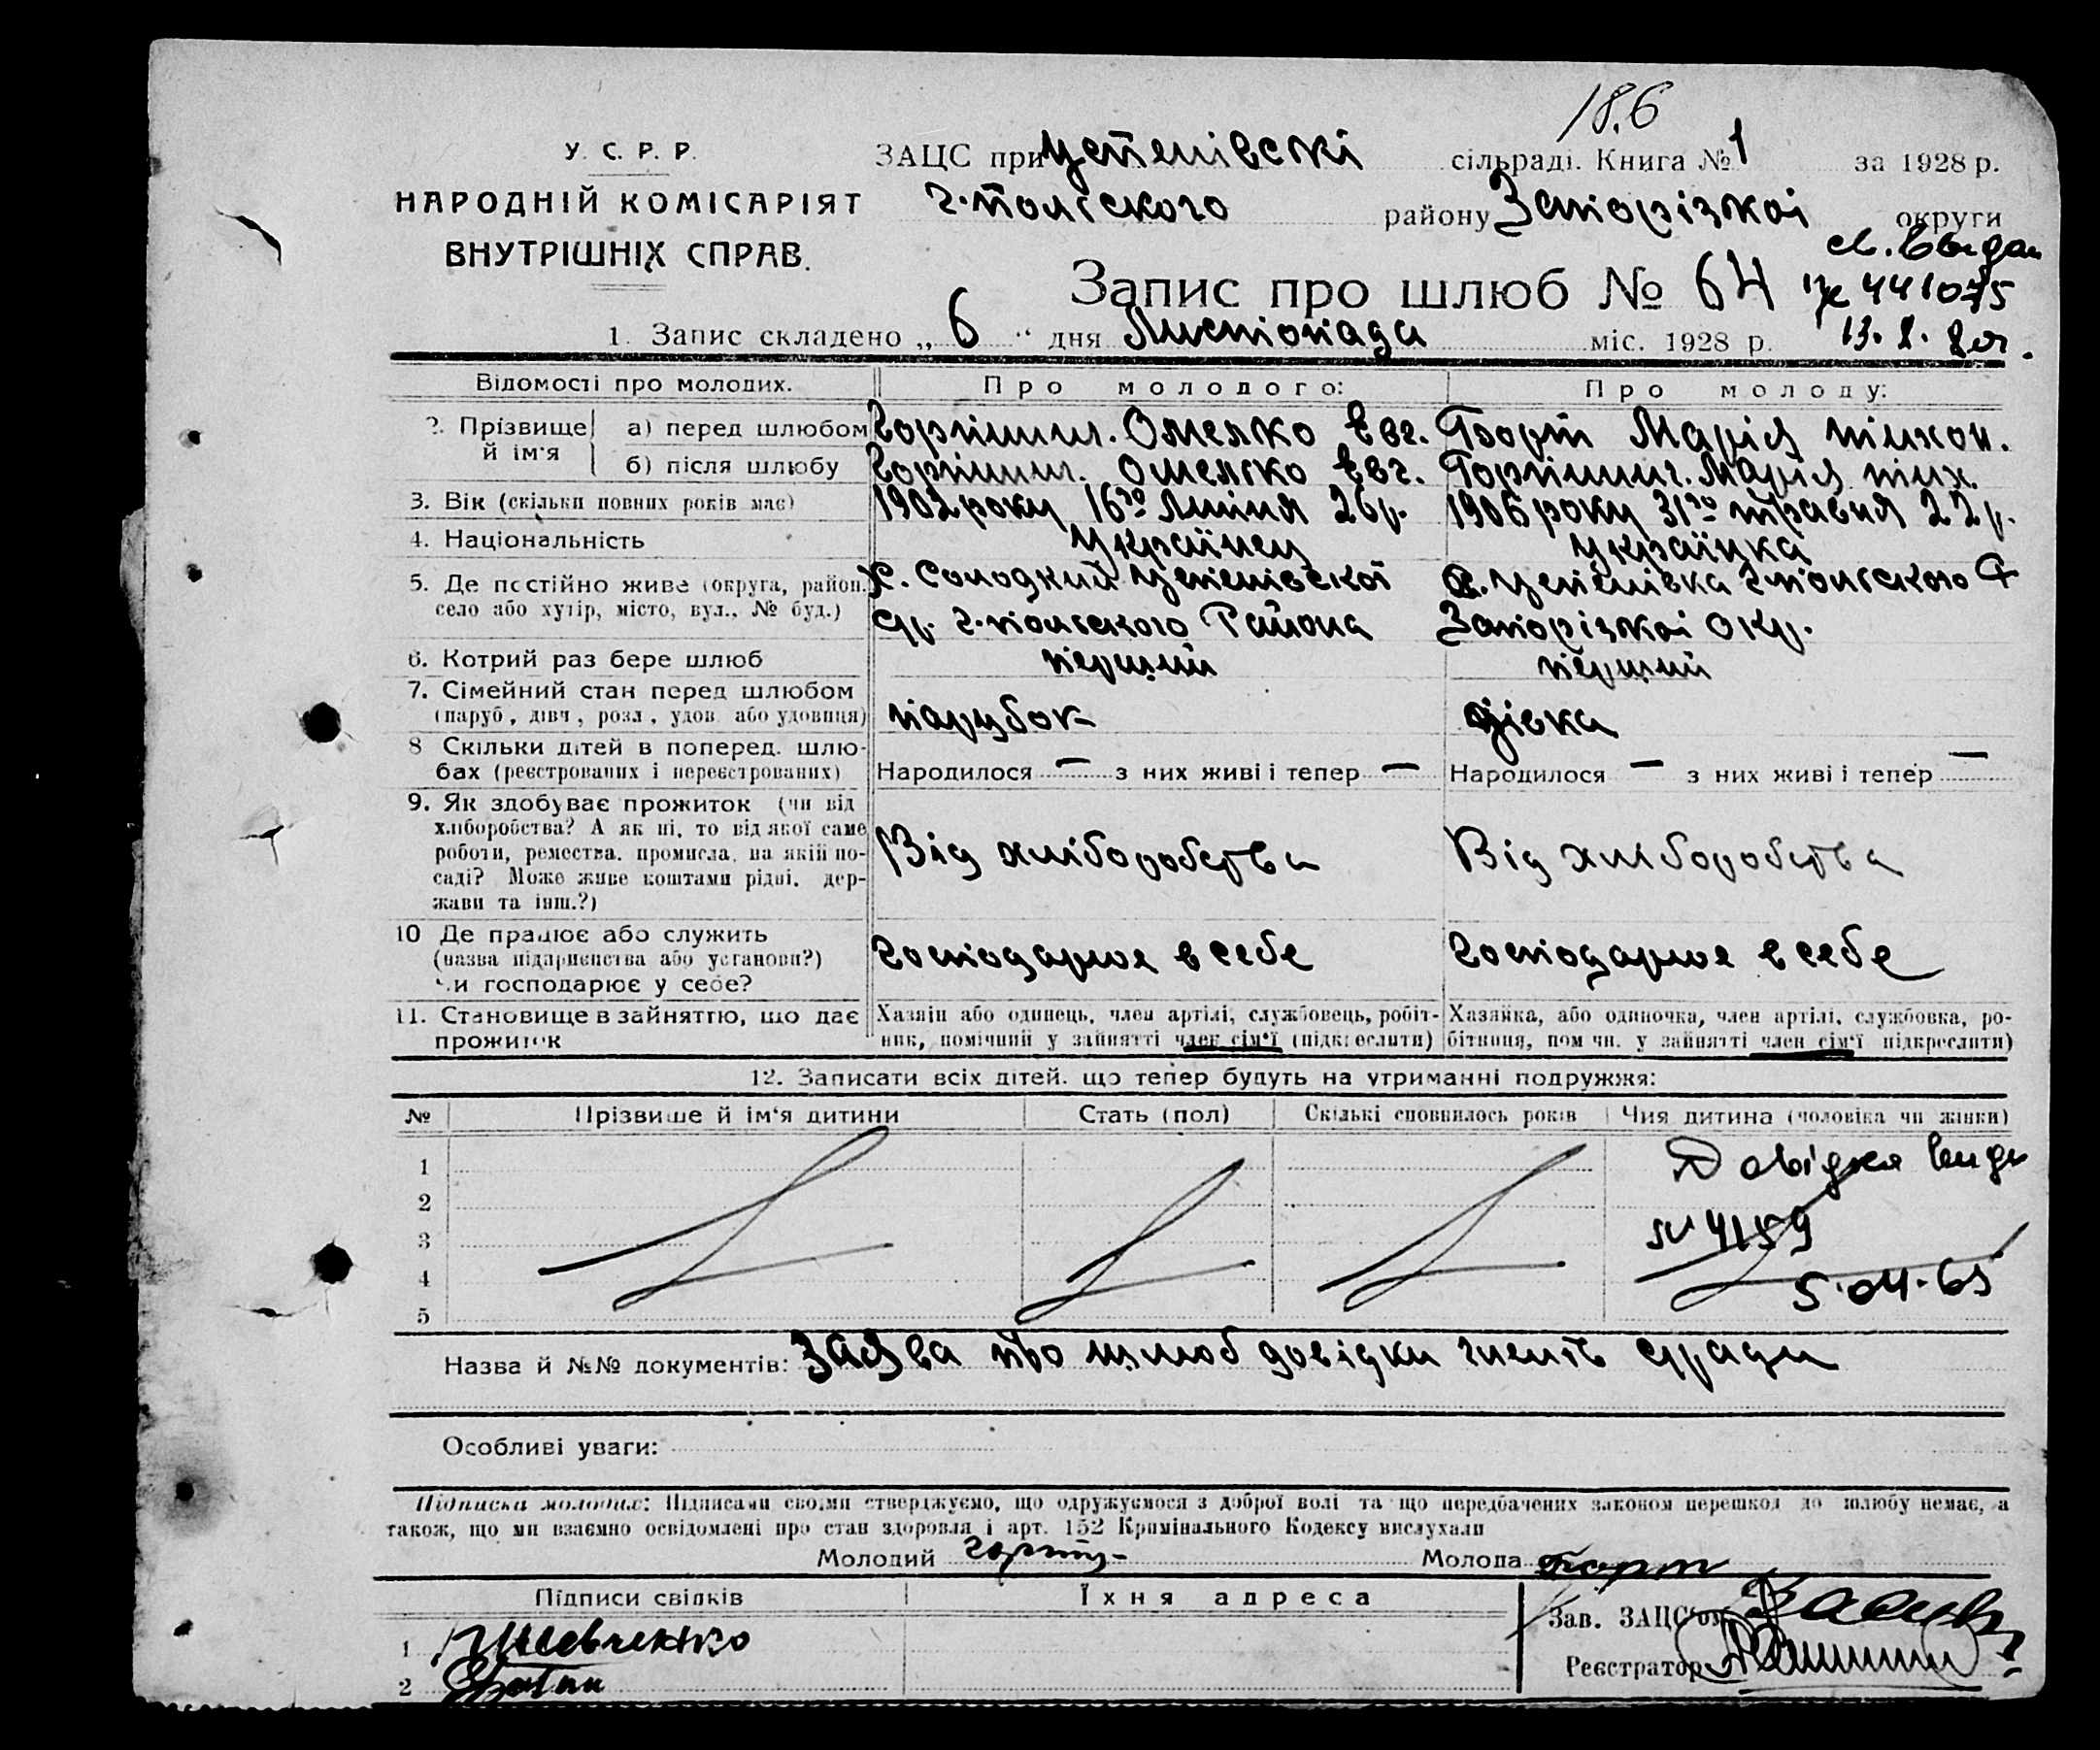 18.6
У. С. Р. Р.
НАРОДНІЙ КОМІСАРІЯТ
ВНУТРІШНІХ СПРАВ.
ЗАЦС при Успенівські сільраді. Книга № 1 за 1928 р.
г.-польского району Запорізької округи
Запис про шлюб № 64
441075
1. Запис складено „ 6 “ дня Листопада міс. 1928 р.
Відомості про молодих. Про молодого: Про молоду:
2. Прізвище й ім'я
а) перед шлюбом Омелко Евг. Марія тихон.
б) після шлюбу Омелко Евг. Марія тих.
3. Вік (скільки повних років має) 1902 року 16го Липня 26 р. 1906 року 31го травня 22 р.
4. Національність Українец Українка
5. Де постійно живе (округа, район, село або хутір, місто, вул., № буд.)
х. Солодкий Успенівської с/р. г-польського Района
с. Успенівка г-польского Р Запорізької окр.
6. Котрий раз бере шлюб перший перший
7. Сімейний стан перед шлюбом (паруб., дівч., розл., удов. або удовиця) парубок дівка
8 Скільки дітей в поперед. шлюбах (реєстрованих і нереєстрованих) Народилося — з них живі і тепер — Народилося — з них живі і тепер —
9. Як здобуває прожиток (чи від хліборобства? А як ні, то від якої саме роботи, ремества, промисла, на якій посаді? Може живе коштами рідні, держави та інш.?)
Від хліборобства Від хліборобства
10 Де працює або служить (назва підприємства або установи?) чи господарює у себе?
господарює в себе господарює в себе
11. Становище в зайняттю, що дає прожиток
Хазяїн або одинець, член артілі, службовець, робітник, помічний у зайнятті член сім'ї (підкреслити)
Хазяйка, або одиночка, член артілі, службовка, робітниця, помічн. у зайнятті член сім'ї підкреслити)
12. Записати всіх дітей, що тепер будуть на утриманні подружжя:
№ Прізвище й ім'я дитини Стать (пол) Скількі сповнилось років Чия дитина (чоловіка чи жінки)
1
2
3
4
5
Довідка
№ 4159
5.04.65
Назва й №№ документів: Заява про шлюб довідки
Особливі уваги:
Підписка молодих: Підписами своїми стверджуємо, що одружуємося з доброї волі та що передбачених законом перешкод до шлюбу немає, а
також, що ми взаємно освідомлені про стан здоровля і арт. 152 Кримінального Кодексу вислухали
Молодий Молода
Підписи свідків Їхня адреса
1 Шевченко
2
Зав. ЗАЦС'ом
Реєстратор